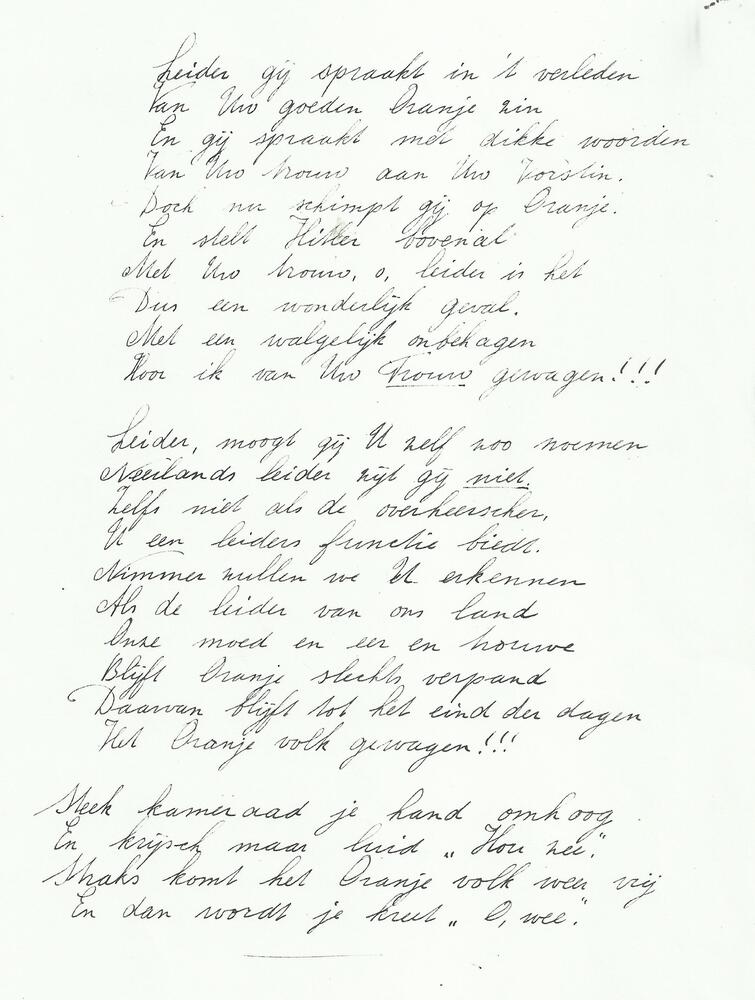 Leider gij spraakt in 't verleden
Van Uw goeden Oranje zin
En gij spraakt met dikke woorden
Van Uw trouw aan Uw Vorstin.
Doch nu schimpt gij op Oranje.
En stelt Hitler bovenal
Met Uw trouw, o, leider is het
Dus een wonderlijk geval.
Met een walgelijk onbehagen
Hoor ik van Uw Trouw gewagen!!!
Leider, moogt gij U zelf zoo noemen
Neerlands leider zijt gij niet.
Zelfs niet als de overheerscher,
U een leiders functie biedt.
Nimmer zullen we U erkennen
Als de leider van ons land
Onze moed en eer en trouwe
Blijft Oranje slechts verpand
Daarvan blijft tot het eind der dagen
Het Oranje volk gewagen!!!
Steek kameraad je hand omhoog
En krijsch maar luid „Hou zee".
Straks komt het Oranje volk weer vrij
En dan wordt je kreet „O, wee".